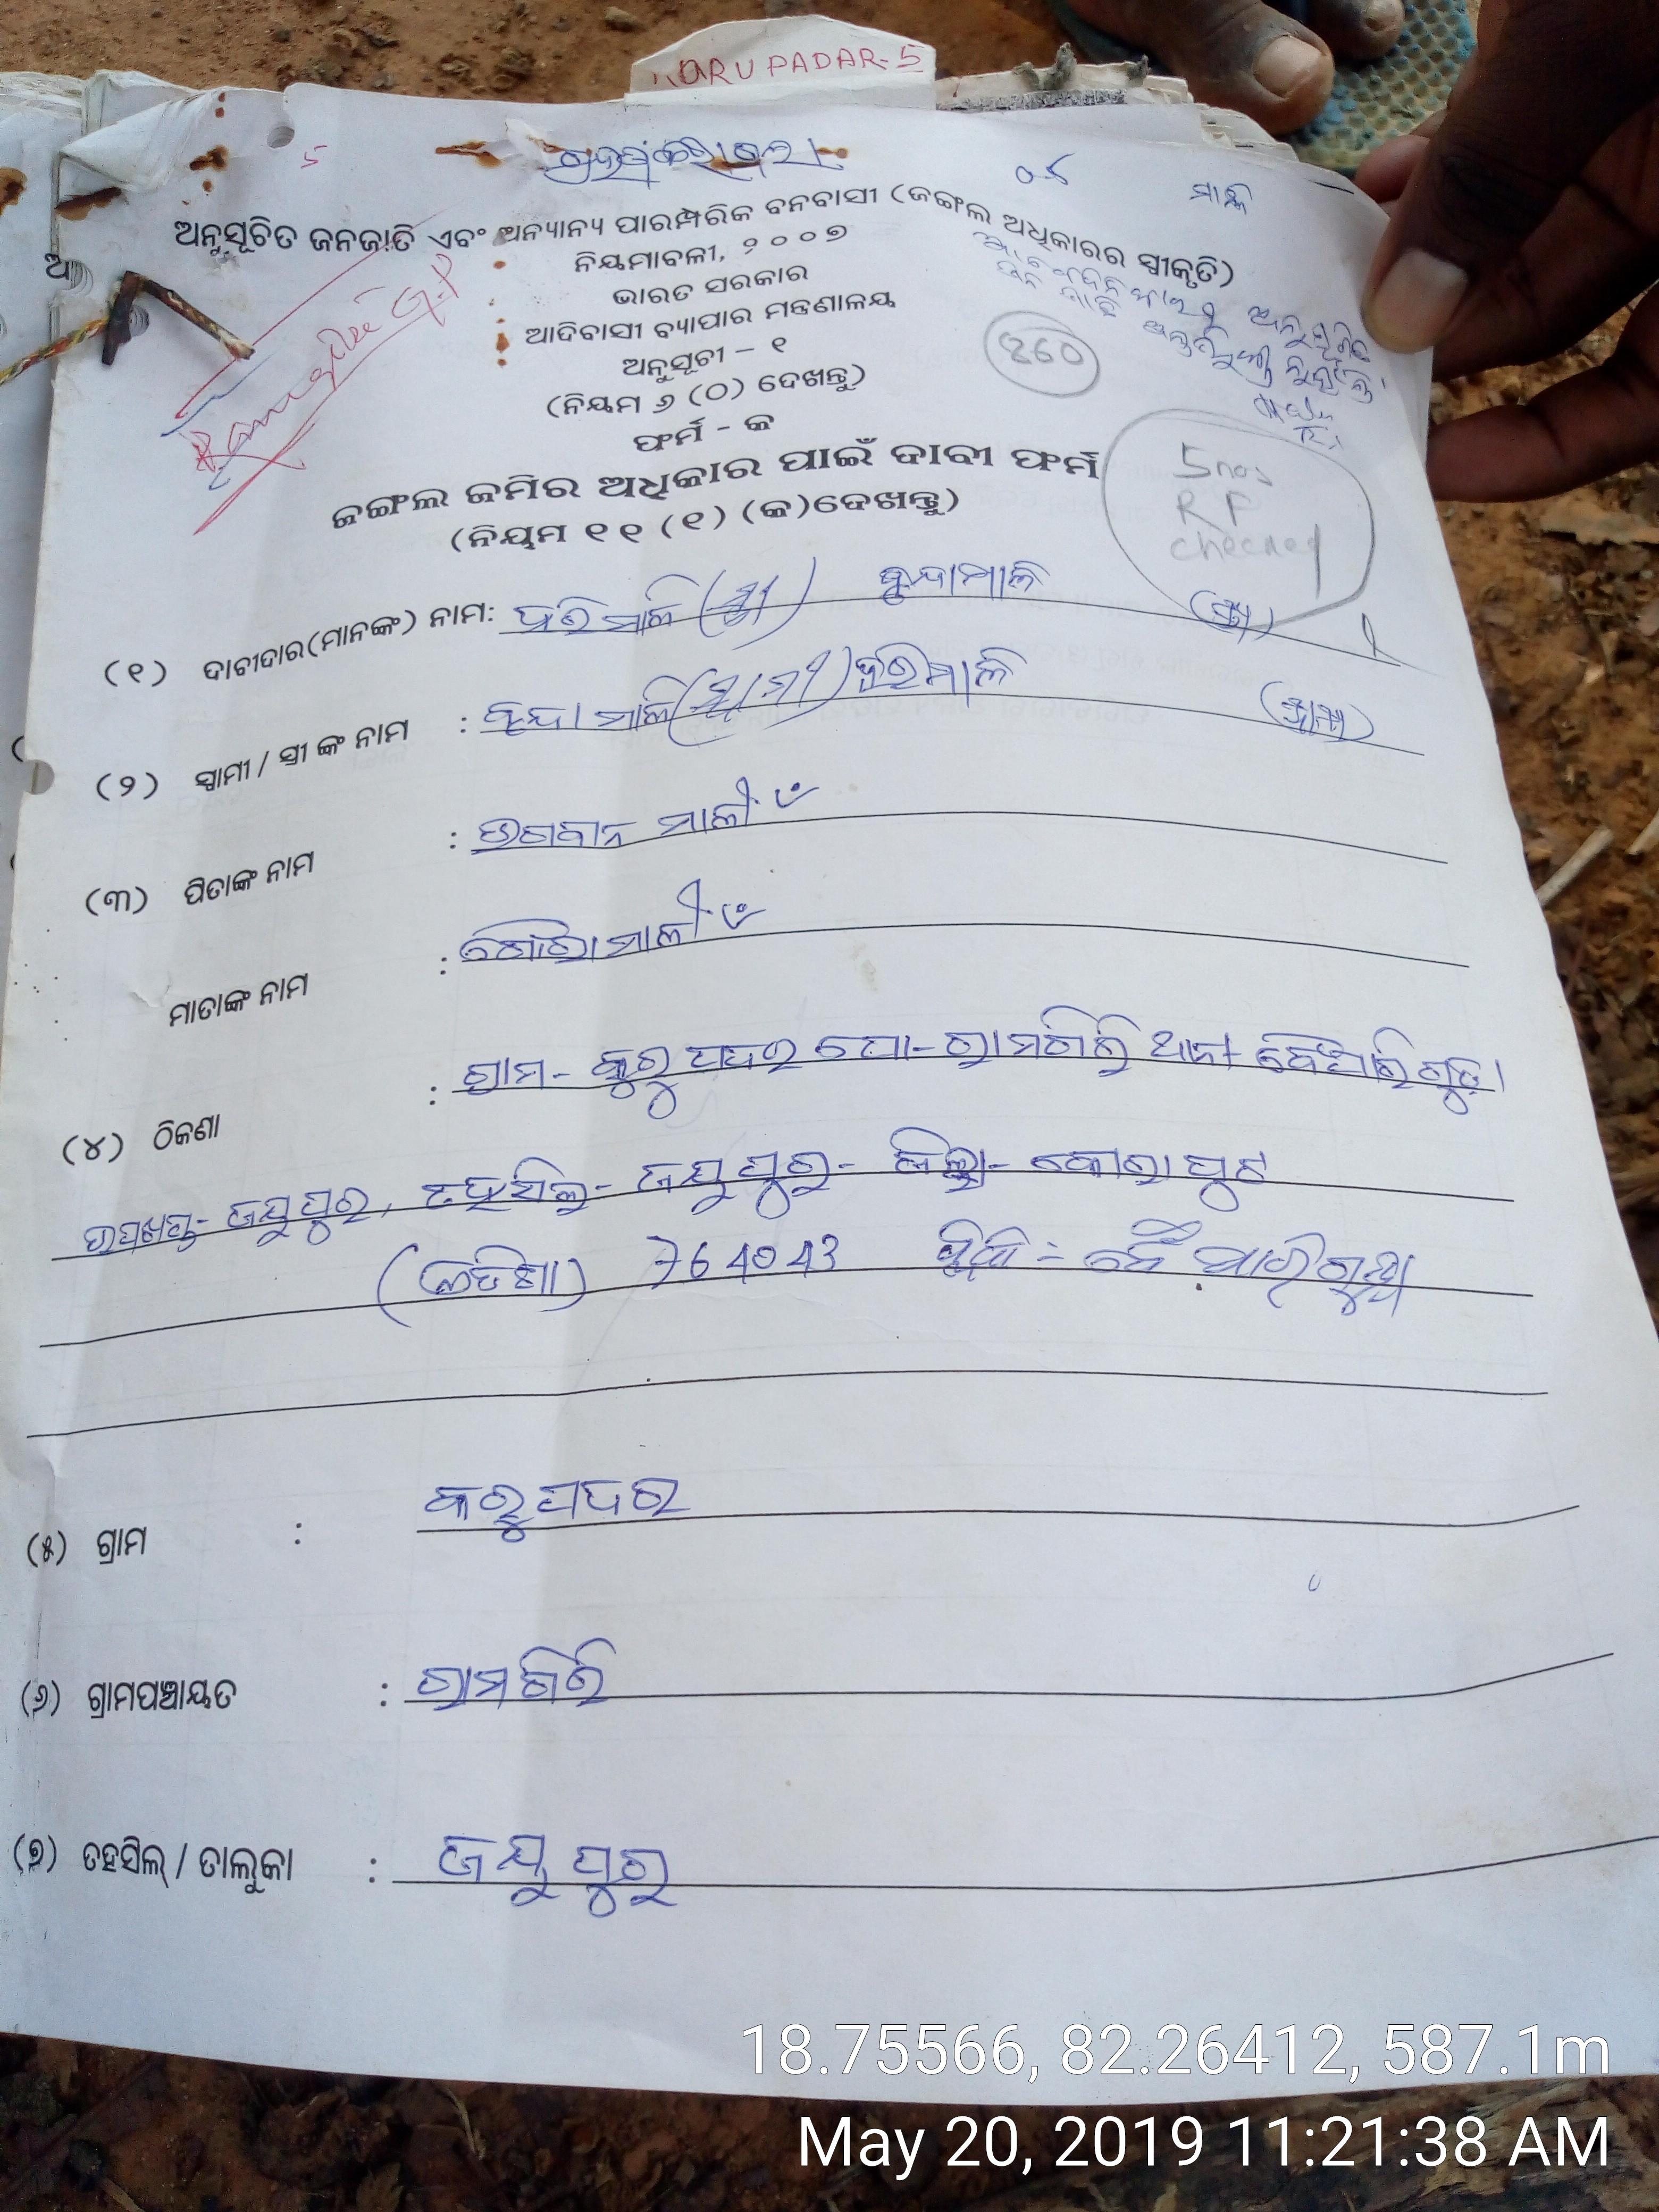 KARUPADAR-5
5
୦୪
ମାଳି
ଅନୁସୂଚିତ ଜନଜାତି ଏବଂ ଅନ୍ୟାନ୍ୟ ପାରମ୍ପରିକ ବନବାସୀ (ଜଙ୍ଗଲ ଅଧିକାରର ସ୍ୱୀକୃତି)
ନିୟମାବଳୀ, ୨୦୦୭
ଭାରତ ସରକାର
ଆଦିବାସୀ ବ୍ୟାପାର ମନ୍ତ୍ରଣାଳୟ
ଅନୁସୂଚୀ – ୧
(ନିୟମ ୬ (୦) ଦେଖନ୍ତୁ)
ଫର୍ମ - କ
ଜଙ୍ଗଲ ଜମିର ଅଧିକାର ପାଇଁ ଦାବୀ ଫର୍ମ
(ନିୟମ ୧୧ (୧) (କ)ଦେଖନ୍ତୁ)
Ramagiri G.P
260
5 nos
R P
checked
(୧) ଦାବୀଦାର(ମାନଙ୍କ) ନାମ: ହରି ମାଳି (ସ୍ତ୍ରୀ) ବୃନ୍ଦା ମାଳି
(୨) ସ୍ୱାମୀ / ସ୍ତ୍ରୀ ଙ୍କ ନାମ : ବୃନ୍ଦା ମାଳି (ସ୍ୱାମୀ) ହରି ମାଳି
(୩) ପିତାଙ୍କ ନାମ : ଭଗବାନ ମାଳୀ
ମାତାଙ୍କ ନାମ : ଗୌରୀ ମାଳୀ
(୪) ଠିକଣା : ଗ୍ରାମ- କରୁପଦର ପୋ- ରାମଗିରି ଥାନା ବୈପାରିଗୁଡ଼ା
ଉପଖଣ୍ଡ- ଜୟପୁର, ତହସିଲ- ଜୟପୁର- ଜିଲ୍ଲା- କୋରାପୁଟ
(ଓଡିଶା) 764043 ବ୍ଲକ = ବୈପାରୀଗୁଡ଼ା
(୫) ଗ୍ରାମ : କରୁପଦର
(୬) ଗ୍ରାମପଞ୍ଚାୟତ : ରାମଗିରି
(୭) ତହସିଲ୍ / ତାଲୁକା : ଜୟପୁର
18.75566, 82.26412, 587.1m
May 20, 2019 11:21:38 AM